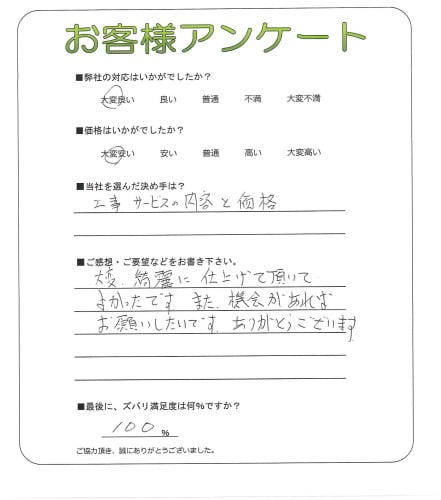 お客様アンケート
■弊社の対応はいかがでしたか？
大変良い 良い 普通 不満 大変不満
■価格はいかがでしたか？
大変安い 安い 普通 高い 大変高い
■当社を選んだ決め手は？
工事 サービスの内容と価格
■ご感想・ご要望などをお書き下さい。
大変、綺麗に仕上げて頂いて
よかったです。また、機会があれば
お願いしたいです。ありがとうございます
■最後に、ズバリ満足度は何％ですか？
100％
ご協力頂き、誠にありがとうございました。